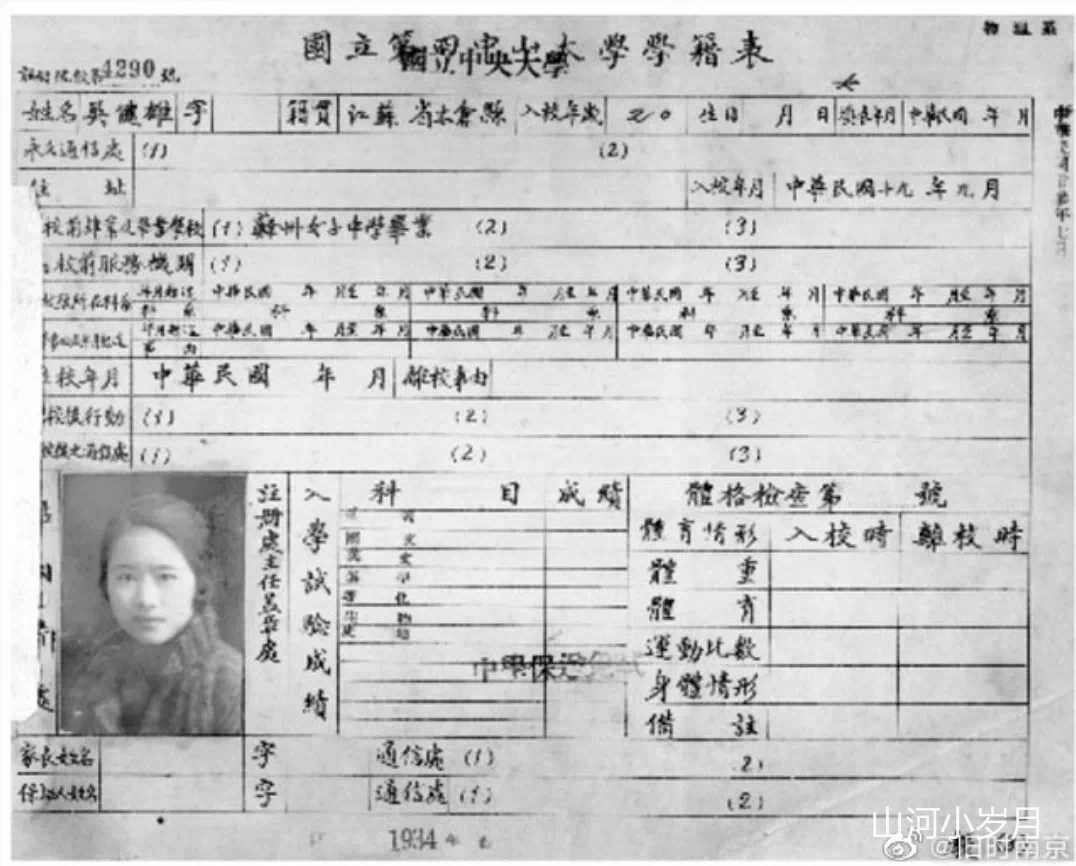 物理系
國立第四中山大學學籍表
國立中央大學
4290號
姓名 吳健雄 字 籍貫 江蘇省太倉縣 入校年歲 20 生日 月 日 中華民國 年 月
永久通信處 (1) (2)
住址 入校年月 中華民國十九年九月
校前 (1) 蘇州女子中學畢業 (2) (3)
校前服務機關 (1) (2) (3)
年月 中華民國 年 月至 年 月 中華民國 年 月至 年 月 中華民國 年 月至 年 月 中華民國 年 月至 年 月
科 系 科 系 科 系 科 系
年月 中華民國 年 月至 年 月 中華民國 年 月至 年 月 中華民國 年 月至 年 月 中華民國 年 月至 年 月
校年月 中華民國 年 月 離校事由
校後行動 (1) (2) (3)
(1) (2) (3)
註冊處主任蓋章處
入學試驗成績
科目 成績
國文
英文
中學保送免試
體格檢查第 號
體育情形 入校時 離校時
體重
體育
運動比數
身體情形
備註
家長姓名 字 通信處 (1) (2)
保證人姓名 字 通信處 (1) (2)
1934
山河小岁月
@旧时南京